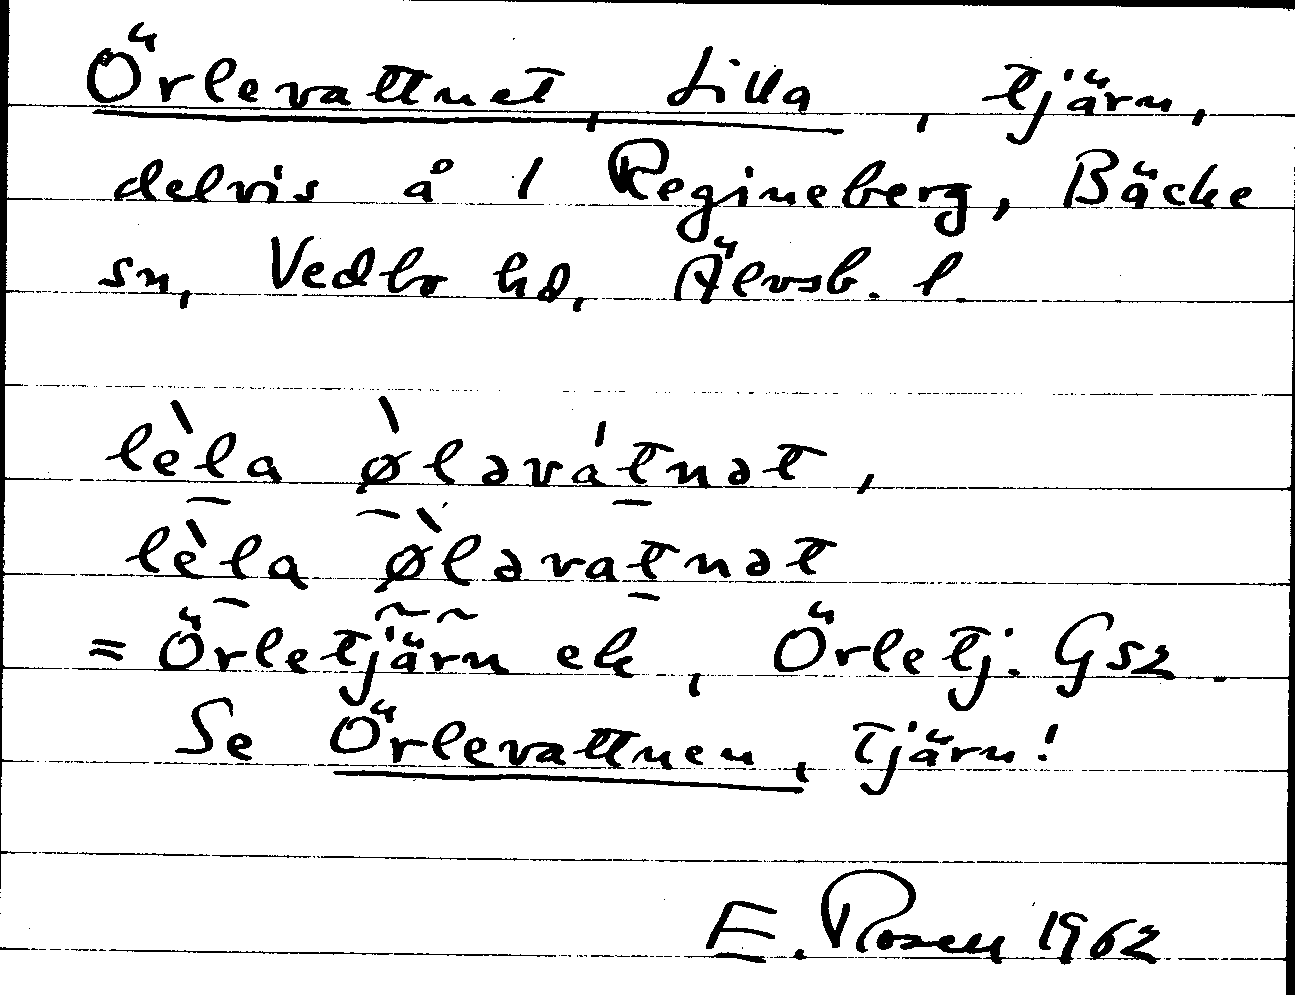 Örlevattnet, Lilla, tjärn,
delvis å 1 Regineberg, Bäcke
sn, Vedbo hd, Älvsb. l.
lèla øləvátnət,
lèla øləvatnət
= Örletjärn ek, Örletj. Gsz.
Se Örlevattnen, tjärn!
E. Rosen 1962